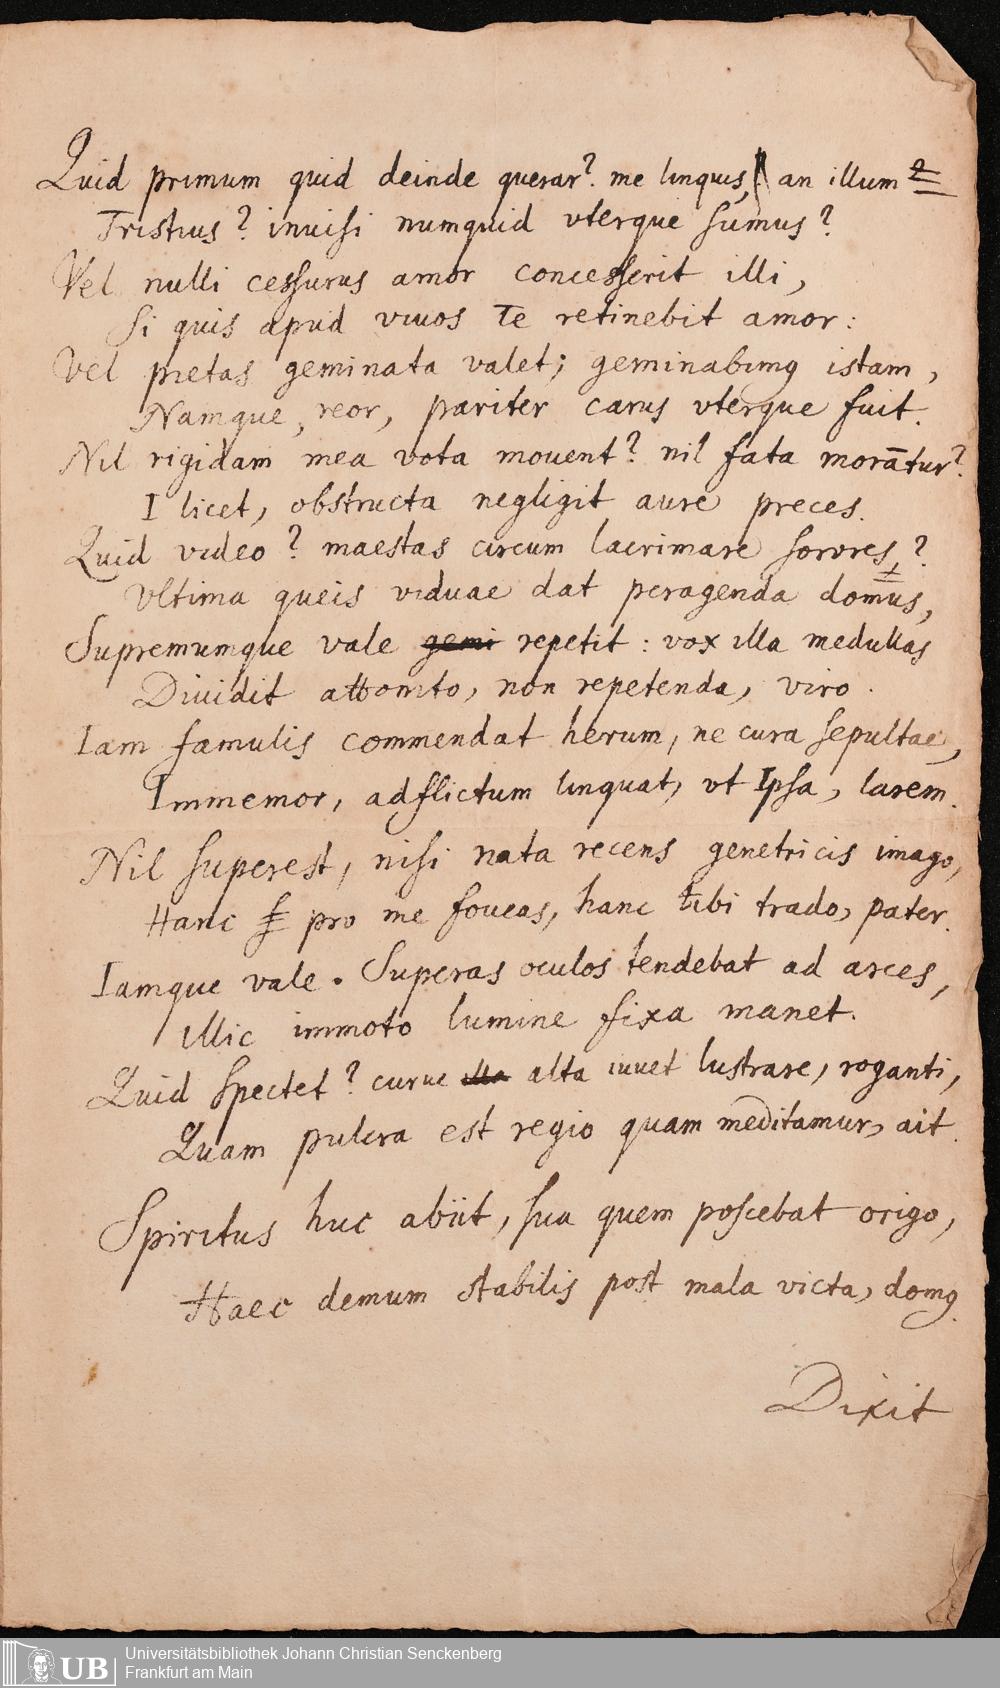 Quid primum quid deinde querar? me linquis, an illum
Tristius? inuisi numquid vterque sumus?
Vel nulli cessurus amor concesserit illi,
Si quis apud viuos Te retinebit amor:
Vel pietas geminata valet; geminabimꝰ istam,
Namque, reor, pariter carus vterque fuit.
Nil rigidam mea vota mouent? nil fata morātur?
I licet, obstructa negligit aure preces.
Quid video? maestas circum lacrimare sorores?
Vltima queis viduae dat peragenda domus,
Supremumque vale gemi repetit: vox illa medullas
Diuidit attonito, non repetenda, viro.
Iam famulis commendat herum, ne cura sepultae,
Immemor, adflictum linquat, vt Ipsa, larem.
Nil superest, nisi nata recens genetricis imago,
Hanc pro me foueas, hanc tibi trado, pater.
Iamque vale. Superas oculos tendebat ad arces,
Illic immoto lumine fixa manet.
Quid spectet? curue illa alta iuuet lustrare, roganti,
Quam pulcra est regio quam meditamur, ait.
Spiritus huc abiit, sua quem poscebat origo,
Haec demum stabilis post mala victa, domꝰ.
Dixit
UB Universitätsbibliothek Johann Christian Senckenberg
Frankfurt am Main